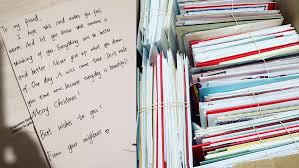 To my friend,
I hope this card makes you feel
warm. And let you know that someone is
thinking of you. Everything will be better
and better. Never give up what you dream
of. One day, it will come true. Don't miss
you time now because everyday is beautiful!
Merry Christmas!
Best wishes to you!
From your neighbour